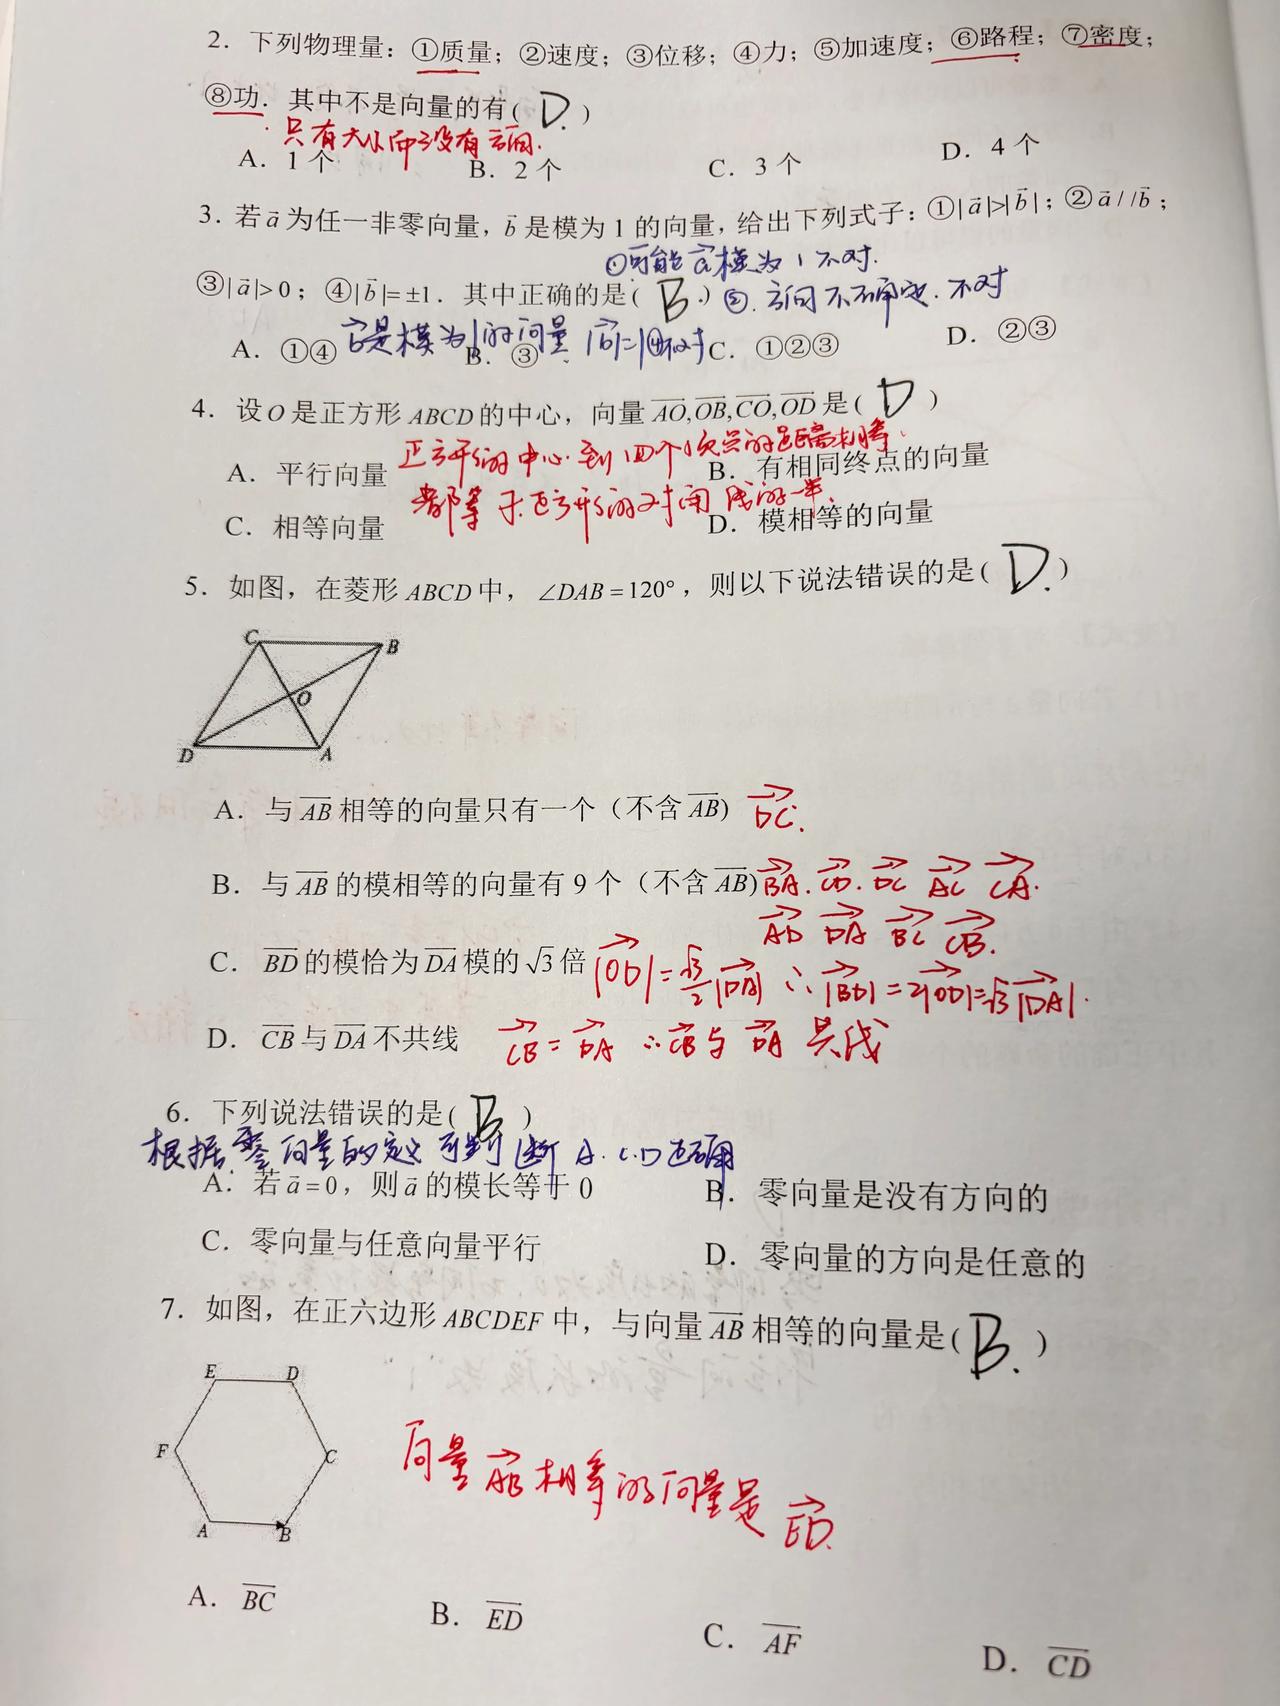 2．下列物理量：①质量；②速度；③位移；④力；⑤加速度；⑥路程；⑦密度；
⑧功．其中不是向量的有( D. )
只有大小而没有方向.
A．1 个 B．2 个 C．3 个 D．4 个
3．若a⃗为任一非零向量，b⃗是模为 1 的向量，给出下列式子：①|a⃗|>|b⃗|；②a⃗//b⃗；
①可能a⃗模为1不对.
③|a⃗|>0；④|b⃗|=±1．其中正确的是( B. ) ②.方向不确定.不对
b⃗是模为1的向量 |b⃗|=1④不对
A．①④ B．③ C．①②③ D．②③
4．设O是正方形 ABCD 的中心，向量 AO,OB,CO,OD 是( D )
正方形的中心.到四个顶点的距离相等.
A．平行向量 B．有相同终点的向量
都等于正方形的对角线的一半.
C．相等向量 D．模相等的向量
5．如图，在菱形 ABCD 中，∠DAB=120°，则以下说法错误的是( D. )
C B
O
D A
A．与 AB 相等的向量只有一个（不含 AB） DC.
B．与 AB 的模相等的向量有 9 个（不含 AB） BA. CD. DC AC CA.
AD DA BC CB.
C．BD 的模恰为 DA 模的 √3 倍 |OD|=√3/2|DA| ∴|BD|=2|OD|=√3|DA|.
D．CB 与 DA 不共线 CB=DA ∴CB与DA 共线
6．下列说法错误的是( B )
根据零向量的定义可判断 A.C.D正确
A．若a⃗=0，则a⃗的模长等于 0 B．零向量是没有方向的
C．零向量与任意向量平行 D．零向量的方向是任意的
7．如图，在正六边形 ABCDEF 中，与向量 AB 相等的向量是( B. )
E D
F C
A B
向量AB相等的向量是ED.
A．BC B．ED C．AF D．CD